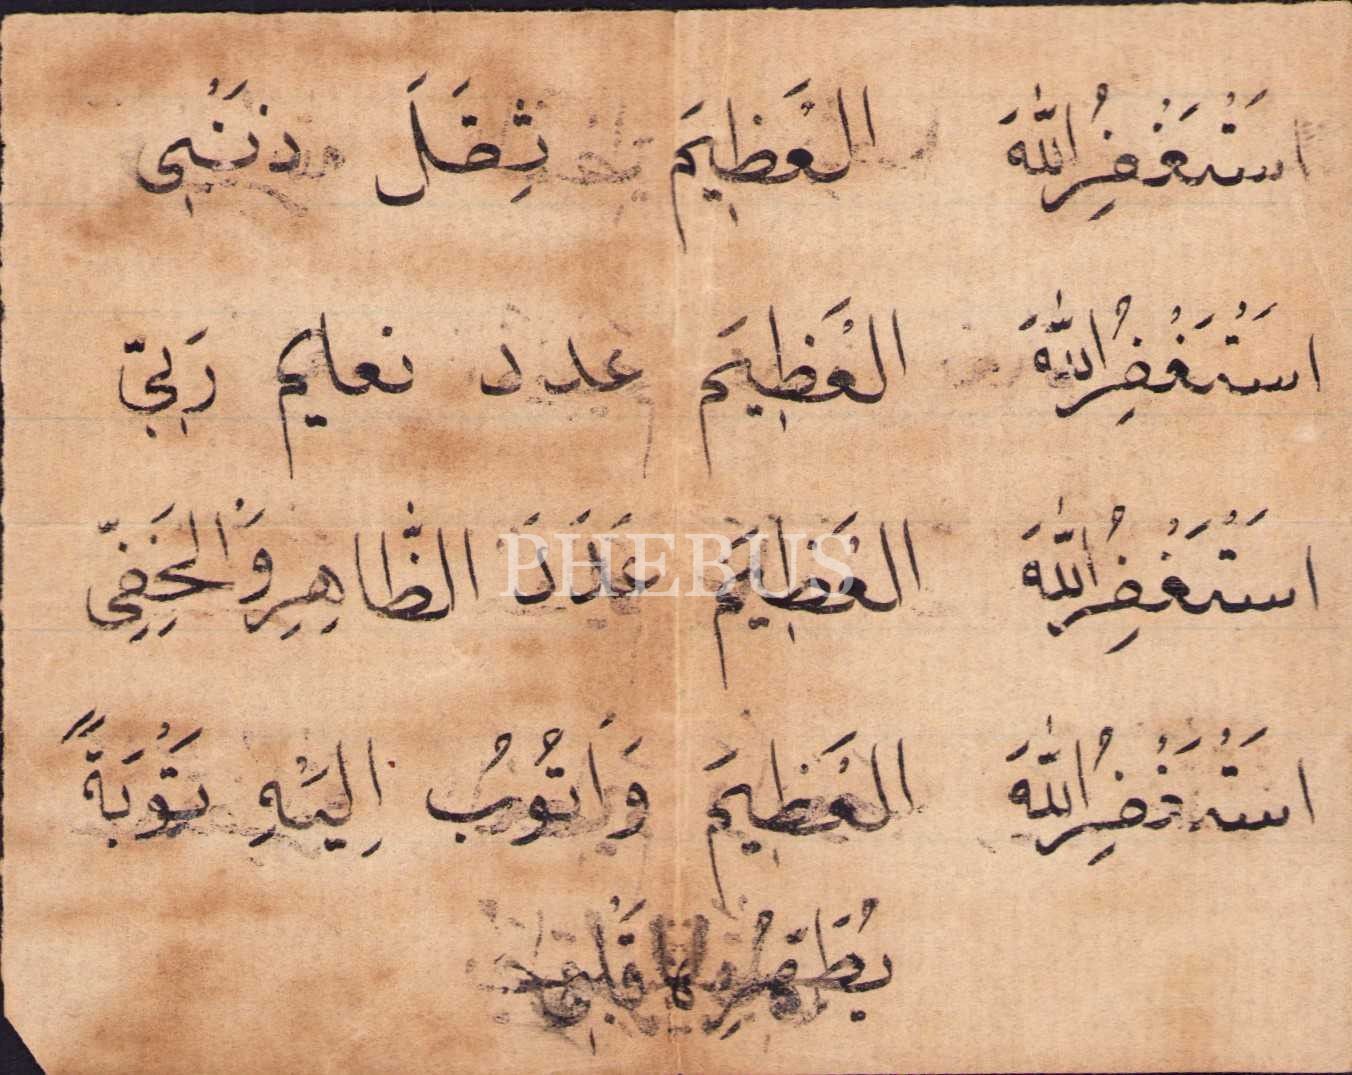 اَسْتَغْفِرُ اللّٰهَ الْعَظِيمَ ثِقَلَ ذَنْبِي
اَسْتَغْفِرُ اللّٰهَ الْعَظِيمَ عدد تعليم رَبِّيّ
اَسْتَغْفِرُ اللّٰهَ الْعَظِيمَ عَدَدَ الظَّاهِرِ وَالْخَفِيِّ
PHEBUS
اَسْتَغْفِرُ اللّٰهَ الْعَظِيمَ وَاَتُوبُ اِلَيْهِ تَوْبَةً
يُطَهِّرُ بها قَلْبِي